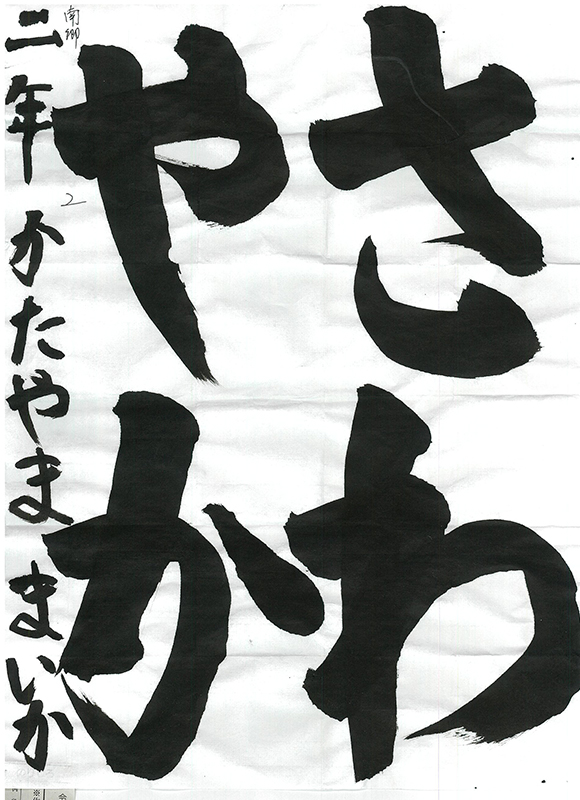 さわ
やか
南郷
二年 かたやま まいか
2